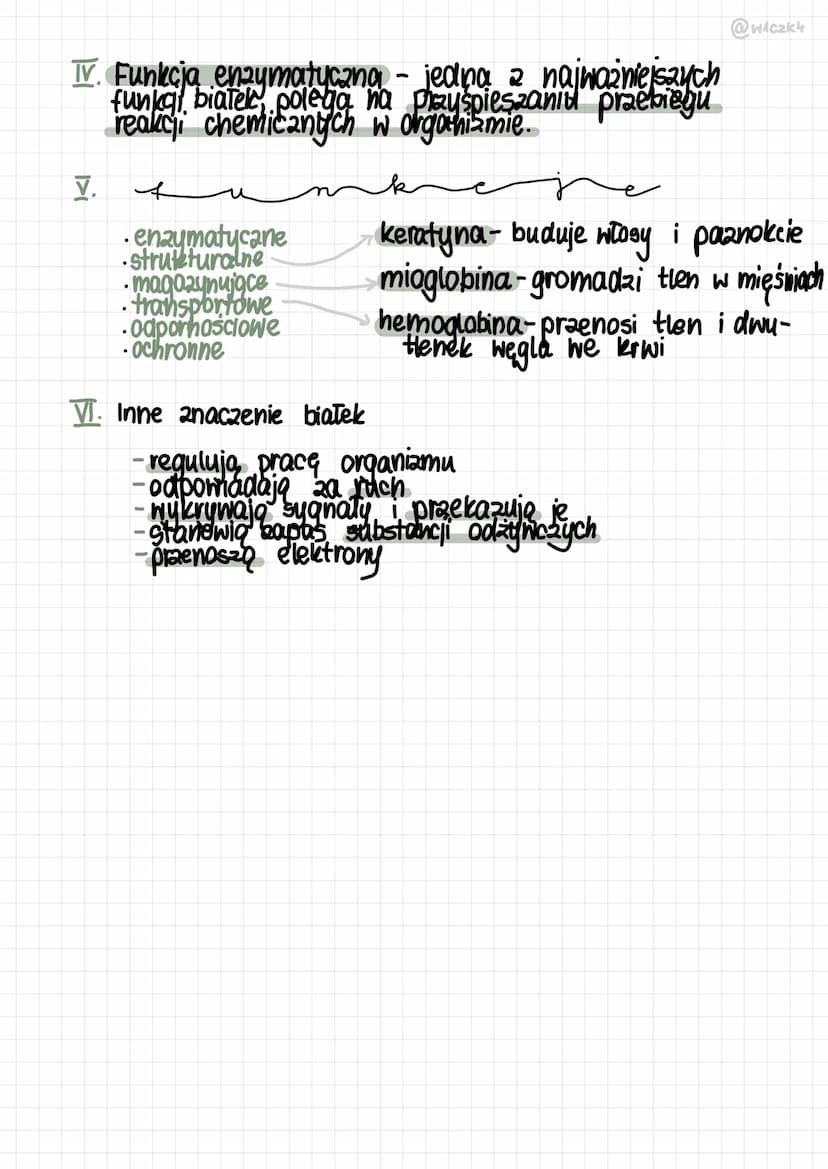 @wiczk4
IV. Funkcja enzymatyczna - jedna z najważniejszych
funkcji białek, polega na przyśpieszaniu przebiegu
reakcji chemicznych w organizmie.
V. funkcje
· enzymatyczne
· strukturalne
· magazynujące
· transportowe
· odpornościowe
· ochronne
keratyna - buduje włosy i paznokcie
mioglobina - gromadzi tlen w mięśniach
hemoglobina - przenosi tlen i dwu-
tlenek węgla we krwi
VI. Inne znaczenie białek
- regulują pracę organizmu
- odpowiadają za ruch
- wykrywają sygnały i przekazują je
- stanowią zapas substancji odżywczych
- przenoszą elektrony